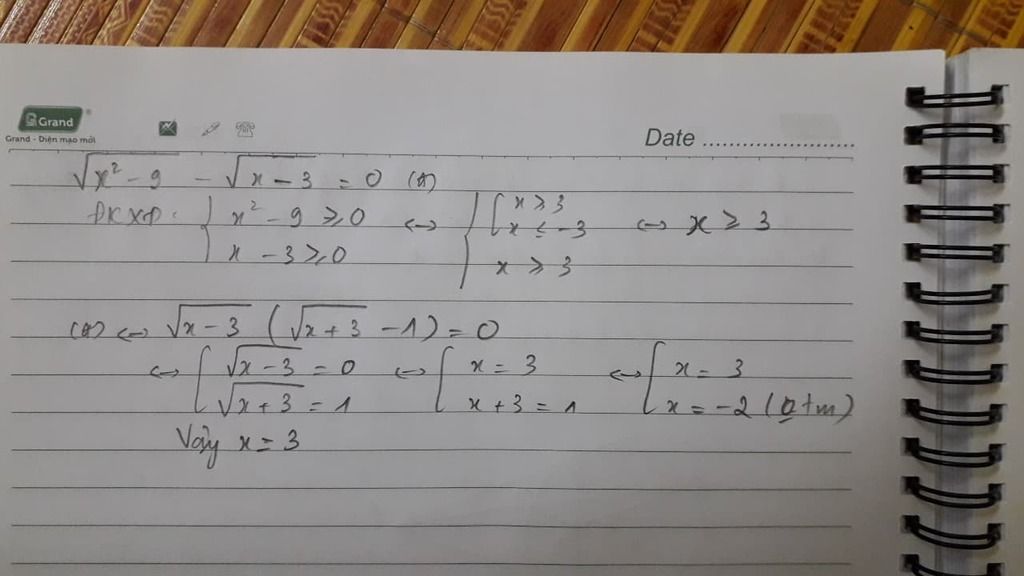 Grand
Grand - Diện mạo mới
Date ........................
√(x² - 9) - √(x - 3) = 0 (*)
ĐKXĐ: { x² - 9 ≥ 0 ; x - 3 ≥ 0 ⇔ { [ x ≥ 3 ; x ≤ -3 ; x ≥ 3 ⇔ x ≥ 3
(*) ⇔ √(x - 3) (√(x + 3) - 1) = 0
⇔ [ √(x - 3) = 0 ; √(x + 3) = 1 ⇔ [ x = 3 ; x + 3 = 1 ⇔ [ x = 3 ; x = -2 (0 tm)
Vậy x = 3